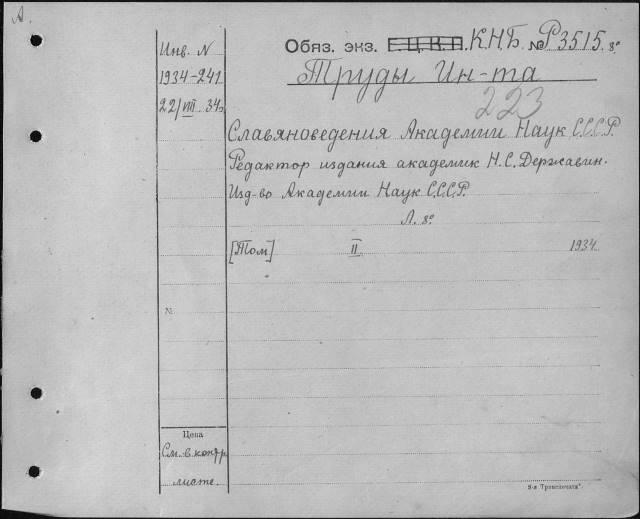 А
Инв. N
1934-241
22/VIII 34г
Обяз. экз. Г.Ц.К.П. К.Н.Б. № Р3515 8°
Труды Ин-та
223
Славяноведения Академии Наук С.С.С.Р.
Редактор издания академик Н.С. Державин.
Изд-во Академии Наук С.С.С.Р.
Л. 8°
[Том] II 1934
№
Цена
См. в контр.
листе.